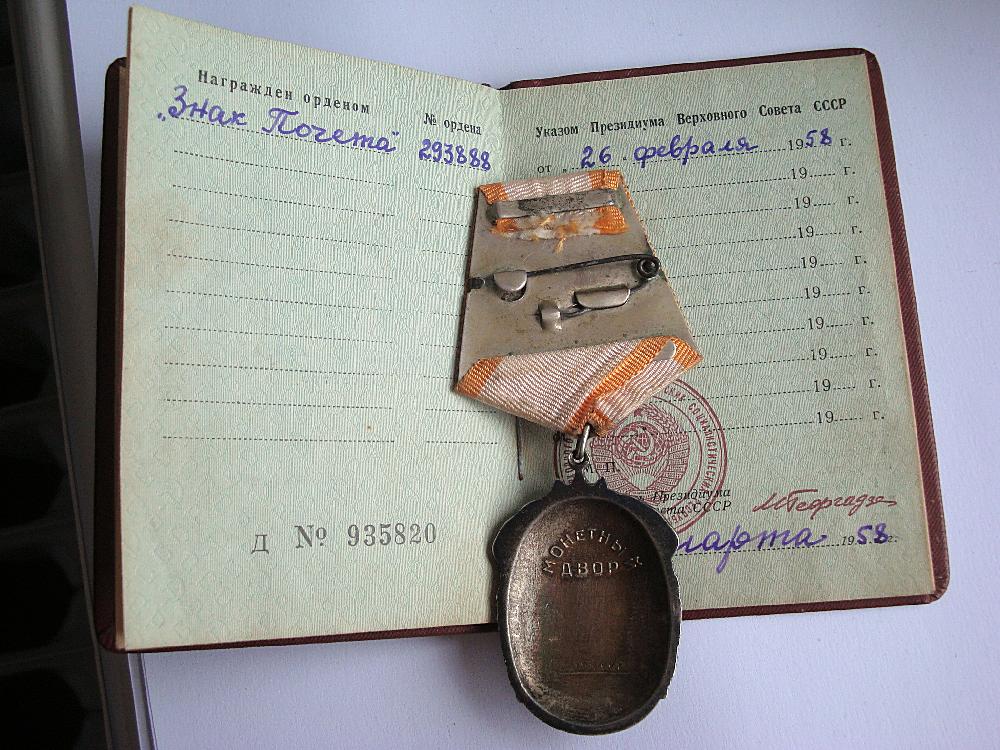 Награжден орденом
№ ордена
„Знак Почета" 293888
Д № 935820
Указом Президиума Верховного Совета СССР
от 26 февраля 1958 г.
19 г.
19 г.
19 г.
19 г.
19 г.
19 г.
19 г.
19 г.
19 г.
М. П.
Президиума
СССР М Георгадзе
марта 1958 г.
МОНЕТНЫЙ
ДВОР